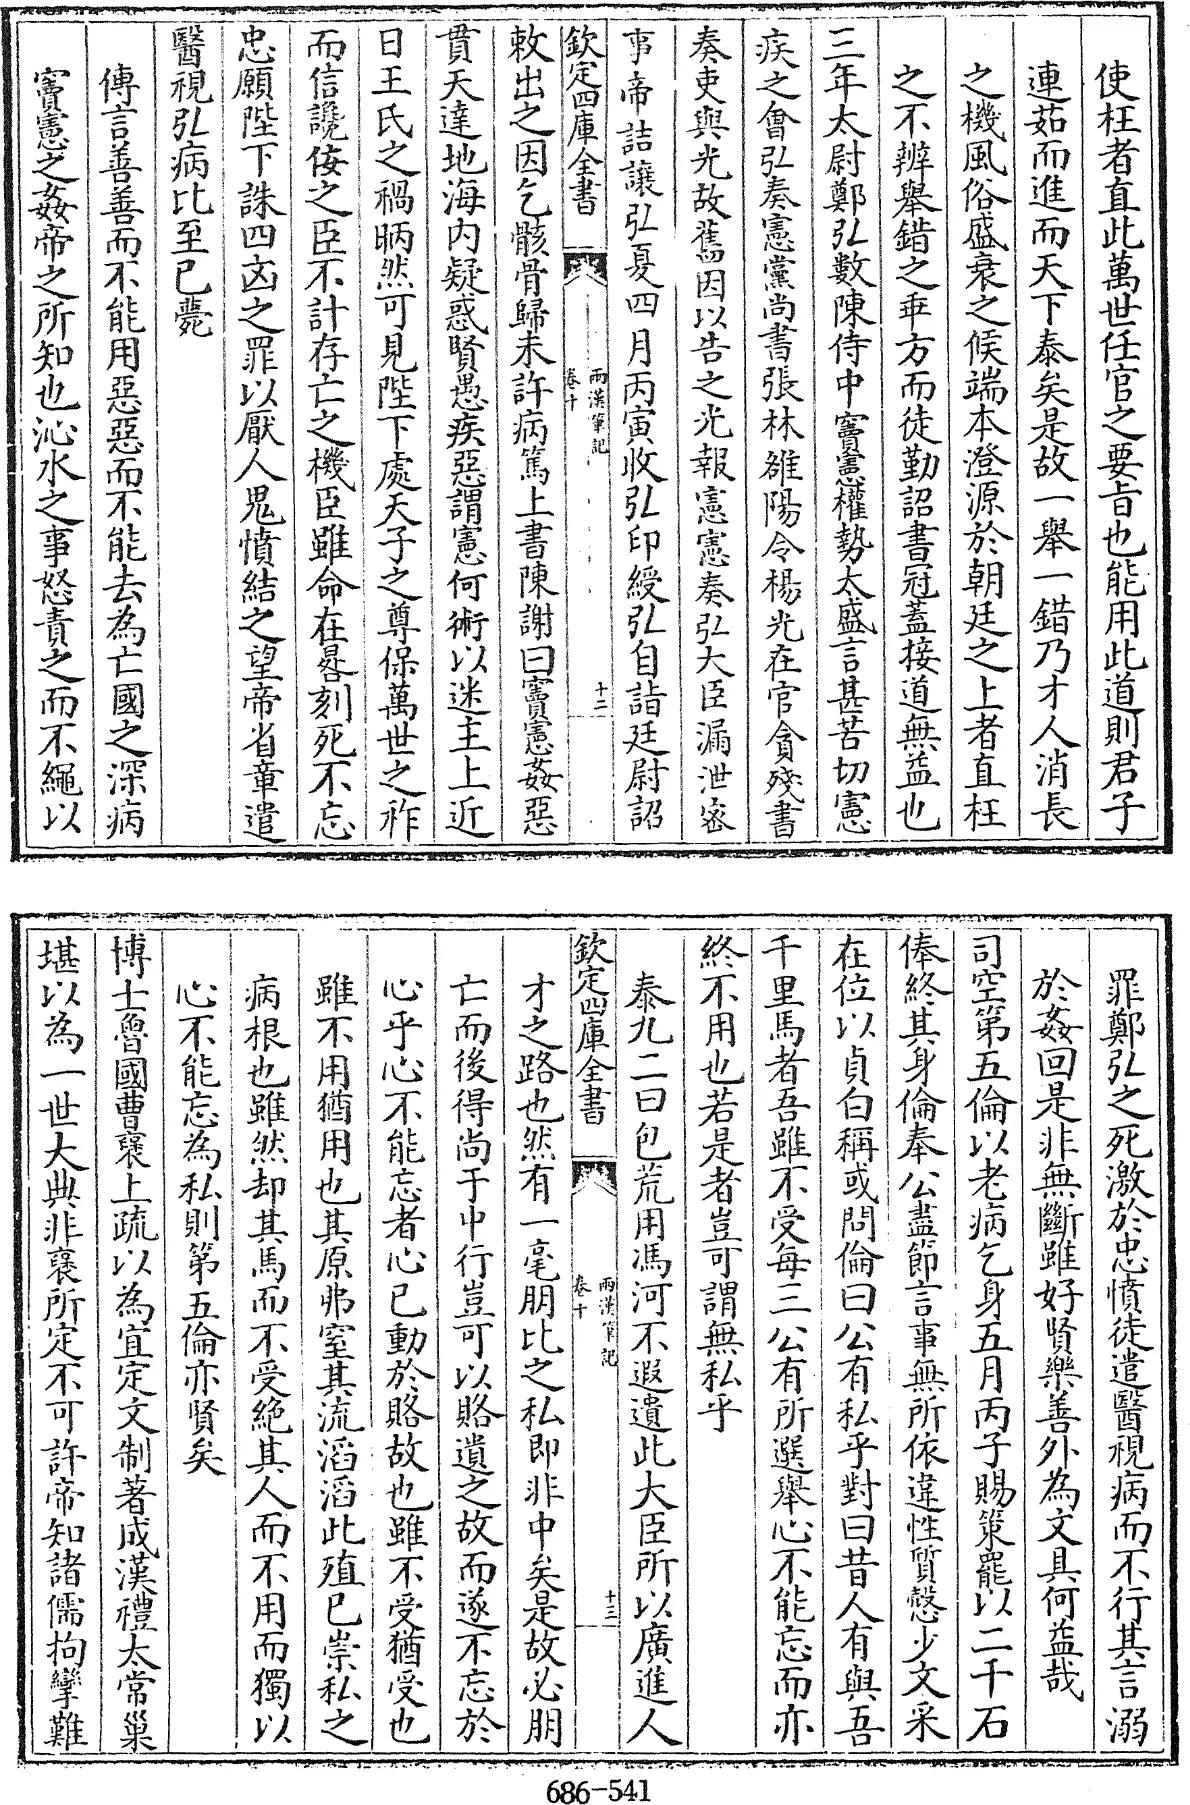 使枉者直此萬世任官之要旨也能用此道則君子
連茹而進而天下泰矣是故一舉一錯乃才人消長
之機風俗盛衰之候端本澄源於朝廷之上者直枉
之不辨舉錯之乖方而徒勤詔書冠蓋接道無益也
三年太尉鄭弘數陳侍中竇憲權勢太盛言甚苦切憲
疾之會弘奏憲黨尚書張林雒陽令楊光在官貪殘書
奏吏與光故舊因以告之光報憲憲奏弘大臣漏泄密
事帝詰讓弘夏四月丙寅收弘印綬弘自詣廷尉詔
欽定四庫全書
兩漢筆記
卷十
十二
敕出之因乞骸骨歸未許病篤上書陳謝曰竇憲姦惡
貫天達地海内疑惑賢愚疾惡謂憲何術以迷主上近
日王氏之禍昞然可見陛下處天子之尊保萬世之祚
而信讒佞之臣不計存亡之機臣雖命在晷刻死不忘
忠願陛下誅四凶之罪以厭人鬼憤結之望帝省章遣
醫視弘病比至已薨
傳言善善而不能用惡惡而不能去為亡國之深病
竇憲之姦帝之所知也沁水之事怒責之而不繩以
罪鄭弘之死激於忠憤徒遣醫視病而不行其言溺
於姦回是非無斷雖好賢樂善外為文具何益哉
司空第五倫以老病乞身五月丙子賜策罷以二千石
俸終其身倫奉公盡節言事無所依違性質慤少文采
在位以貞白稱或問倫曰公有私乎對曰昔人有與吾
千里馬者吾雖不受每三公有所選舉心不能忘而亦
終不用也若是者豈可謂無私乎
泰九二曰包荒用馮河不遐遺此大臣所以廣進人
欽定四庫全書
兩漢筆記
卷十
十三
才之路也然有一毫朋比之私即非中矣是故必朋
亡而後得尚于中行豈可以賂遺之故而遂不忘於
心乎心不能忘者心已動於賂故也雖不受猶受也
雖不用猶用也其原弗窒其流滔滔此殖已崇私之
病根也雖然却其馬而不受絶其人而不用而獨以
心不能忘為私則第五倫亦賢矣
博士魯國曹襃上疏以為宜定文制著成漢禮太常巢
堪以為一世大典非襃所定不可許帝知諸儒拘攣難
686-541